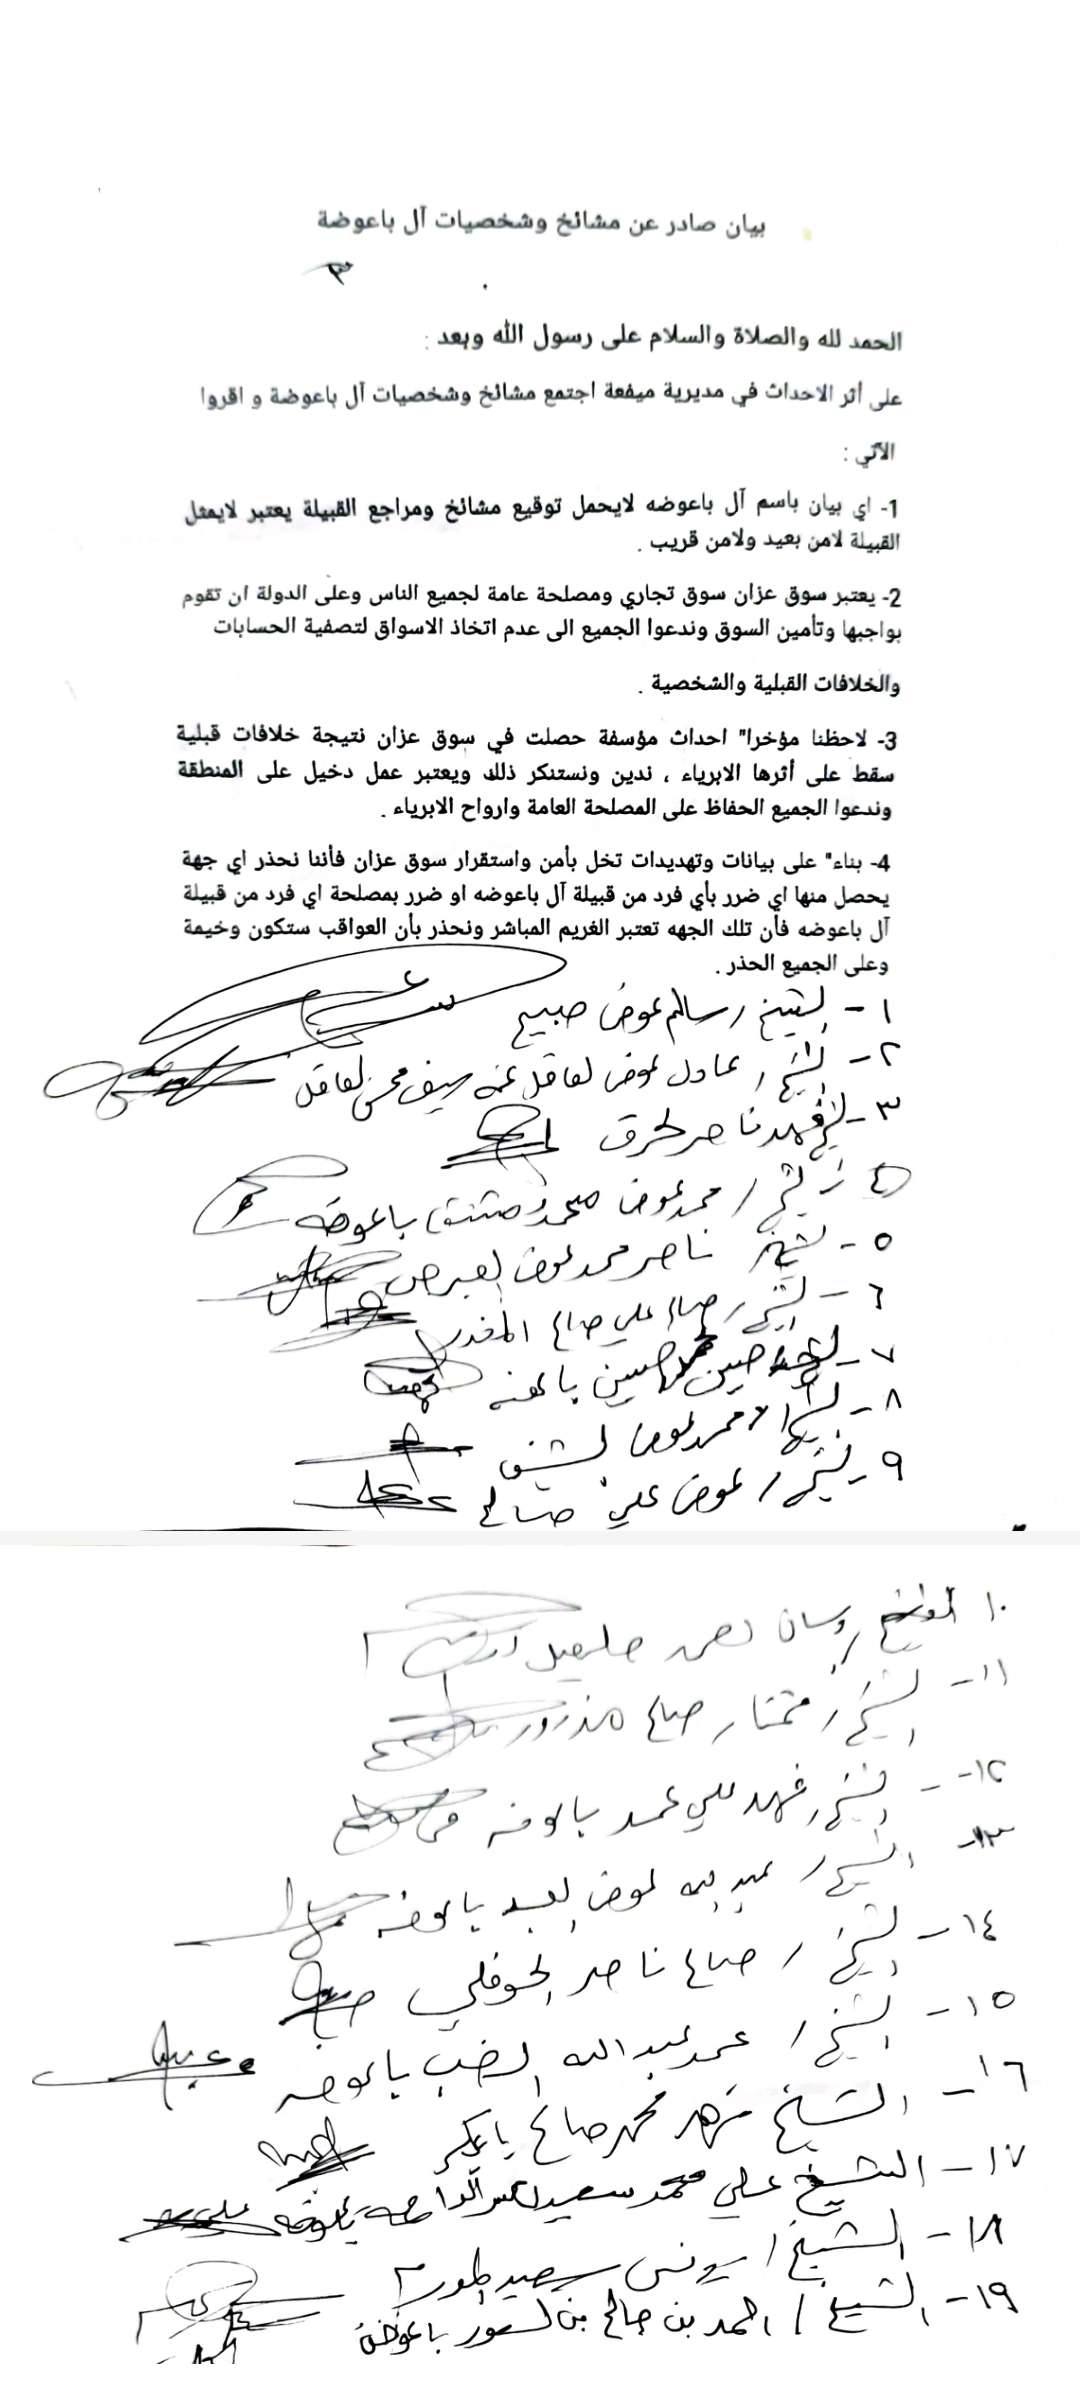 بيان صادر عن مشائخ وشخصيات آل باعوضة
الحمد لله والصلاة والسلام على رسول الله وبعد :
على أثر الاحداث في مديرية ميفعة اجتمع مشائخ وشخصيات آل باعوضة و اقروا
الآتي :
1- اي بيان باسم آل باعوضه لايحمل توقيع مشائخ ومراجع القبيلة يعتبر لايمثل
القبيلة لامن بعيد ولامن قريب .
2- يعتبر سوق عزان سوق تجاري ومصلحة عامة لجميع الناس وعلى الدولة ان تقوم
بواجبها وتأمين السوق وندعوا الجميع الى عدم اتخاذ الاسواق لتصفية الحسابات
والخلافات القبلية والشخصية .
3- لاحظنا مؤخرا" احداث مؤسفة حصلت في سوق عزان نتيجة خلافات قبلية
سقط على أثرها الابرياء ، ندين ونستنكر ذلك ويعتبر عمل دخيل على المنطقة
وندعوا الجميع الحفاظ على المصلحة العامة وارواح الابرياء .
4- بناء" على بيانات وتهديدات تخل بأمن واستقرار سوق عزان فأننا نحذر اي جهة
يحصل منها اي ضرر بأي فرد من قبيلة آل باعوضه او ضرر بمصلحة اي فرد من قبيلة
آل باعوضه فأن تلك الجهه تعتبر الغريم المباشر ونحذر بأن العواقب ستكون وخيمة
وعلى الجميع الحذر .
١- الشيخ / سالم عوض صبيح
٢- الشيخ / عادل عوض لعاقل عنه سيف محسن لعاقل
٣- الشيخ فهد ناصر
٤- الشيخ / محمد عوض محمد باعوضه
٥- الشيخ ناصر محمد عوض
٦- الشيخ / صالح علي صالح
٧- حسين محمد حسين باعوضه
٨- الشيخ / محمد عوض
٩- الشيخ / عوض علي صالح
١٠ الشيخ /
١١- الشيخ / مختار صالح
١٢- الشيخ / فهد علي باعوضه
١٣- الشيخ / عبدالله عوض باعوضه
١٤- الشيخ / صالح ناصر
١٥- الشيخ / عبدالله باعوضه
١٦- الشيخ فهد محمد صالح
١٧- الشيخ علي محمد سعيد باعوضه
١٨- الشيخ / يونس سعيد
١٩- الشيخ / احمد بن صالح بن باعوضه